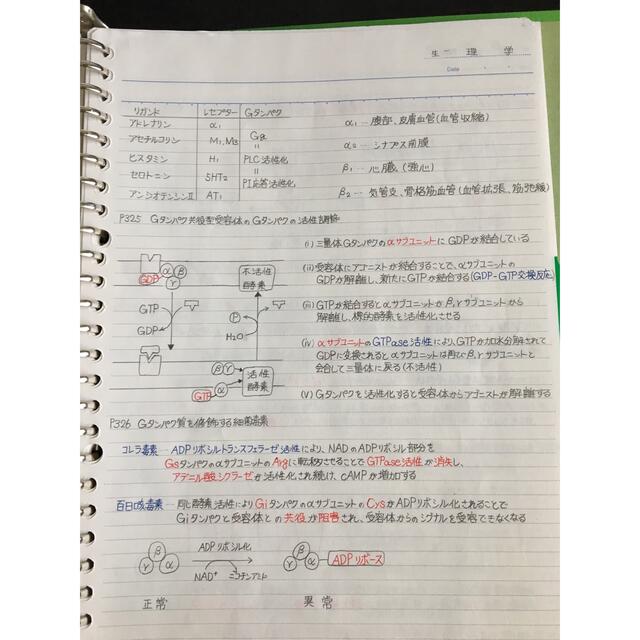 生理学
Date
リガンド レセプター Gタンパク
アドレナリン α₁
アセチルコリン M₁,M₃ Gq
ヒスタミン H₁ PLC活性化
セロトニン 5HT₂
アンジオテンシンⅡ AT₁ PI応答活性化
〃
〃
α₁ … 腹部、皮膚血管(血管収縮)
α₂ … シナプス前膜
β₁ … 心臓(強心)
β₂ … 気管支、骨格筋血管(血管拡張、筋弛緩)
P325 Gタンパク共役型受容体のGタンパクの活性調節
(i) 三量体Gタンパクのαサブユニットに GDPが結合している
(ii) 受容体にアゴニストが結合することで、αサブユニットの
GDPが解離し、新たにGTPが結合する(GDP-GTP交換反応)
(iii) GTPが結合するとαサブユニットがβ,γサブユニットから
解離し、標的酵素を活性化させる
(iv) αサブユニットのGTPase活性により、GTPが加水分解されて
GDPに変換されるとαサブユニットは再びβ,γサブユニットと
会合して三量体に戻る(不活性)
(V) Gタンパクを活性化すると受容体からアゴニストが解離する
GDP α β γ
不活性
酵素
GTP
GDP
P
H₂O
β γ
活性
酵素
GTP α
P326 Gタンパク質を修飾する細菌毒素
コレラ毒素 ADPリボシルトランスフェラーゼ活性により、NADのADPリボシル部分を
GsタンパクのαサブユニットのArgに転移させることでGTPase活性が消失し、
アデニル酸シクラーゼが活性化され続け、cAMPが増加する
百日咳毒素 同じ酵素活性によりGiタンパクのαサブユニットのCysがADPリボシル化されることで
Giタンパクと受容体との共役が阻害され、受容体からのシグナルを受容できなくなる
β γ α
ADPリボシル化
NAD⁺ ニコチンアミド
β γ α ADPリボース
正常 異常